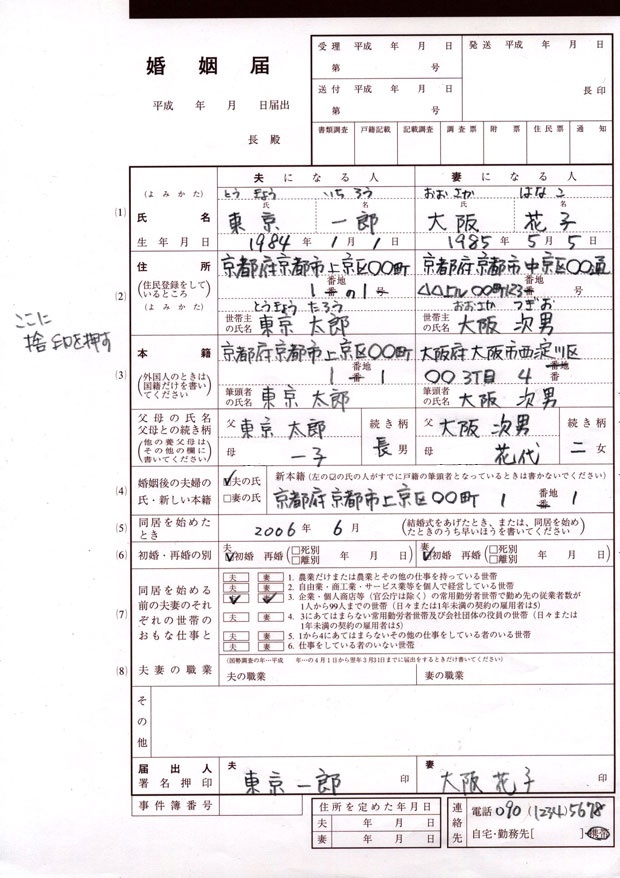 婚姻届
平成 年 月 日届出
長殿
受理 平成 年 月 日
第 号
送付 平成 年 月 日
第 号
発送 平成 年 月 日
長印
書類調査 戸籍記載 記載調査 調査票 附票 住民票 通知
夫になる人 妻になる人
(よみかた) とうきょう いちろう おおさか はなこ
(1) 氏 名 氏 名
氏名 東京 一郎 大阪 花子
生年月日 1984年1月1日 1985年5月5日
(2) 住所 京都府京都市上京区〇〇町 京都府京都市中京区〇〇通
(住民登録をしているところ) 1番地の1号 △△上ル〇〇町123番地 号
(よみかた) とうきょう たろう おおさか つぎお
世帯主の氏名 東京 太郎 世帯主の氏名 大阪 次男
ここに
捨印を押す
(3) 本籍 京都府京都市上京区〇〇町 大阪府大阪市西淀川区
(外国人のときは国籍だけを書いてください) 1番地番1 〇〇3丁目4番地番
筆頭者の氏名 東京 太郎 筆頭者の氏名 大阪 次男
父母の氏名 父 東京 太郎 続き柄 父 大阪 次男 続き柄
父母との続き柄
(他の養父母はその他の欄に書いてください) 母 一子 長男 母 花代 二女
(4) 婚姻後の夫婦の氏・新しい本籍 ☑夫の氏 新本籍(左の☑の氏の人がすでに戸籍の筆頭者となっているときは書かないでください)
□妻の氏 京都府京都市上京区〇〇町 1番地番1
(5) 同居を始めたとき 2006年6月 (結婚式をあげたとき、または、同居を始めたときのうち早いほうを書いてください)
(6) 初婚・再婚の別 夫 ☑初婚 再婚(□死別 □離別 年 月 日) 妻 ☑初婚 再婚(□死別 □離別 年 月 日)
(7) 同居を始める前の夫妻のそれぞれの世帯のおもな仕事と
夫 妻 1. 農業だけまたは農業とその他の仕事を持っている世帯
夫 妻 2. 自由業・商工業・サービス業等を個人で経営している世帯
夫 妻 3. 企業・個人商店等(官公庁は除く)の常用勤労者世帯で勤め先の従業者数が
1人から99人までの世帯(日々または1年未満の契約の雇用者は5)
夫 妻 4. 3にあてはまらない常用勤労者世帯及び会社団体の役員の世帯(日々または
1年未満の契約の雇用者は5)
夫 妻 5. 1から4にあてはまらないその他の仕事をしている者のいる世帯
夫 妻 6. 仕事をしている者のいない世帯
(8) 夫妻の職業 (国勢調査の年…平成 年…の4月1日から翌年3月31日までに届出をするときだけ書いてください)
夫の職業 妻の職業
その他
届出人 夫 妻
署名押印 東京 一郎 印 大阪 花子 印
事件簿番号
住所を定めた年月日
夫 年 月 日
妻 年 月 日
連絡先 電話 090 (1234) 5678
自宅・勤務先[ ] 携帯